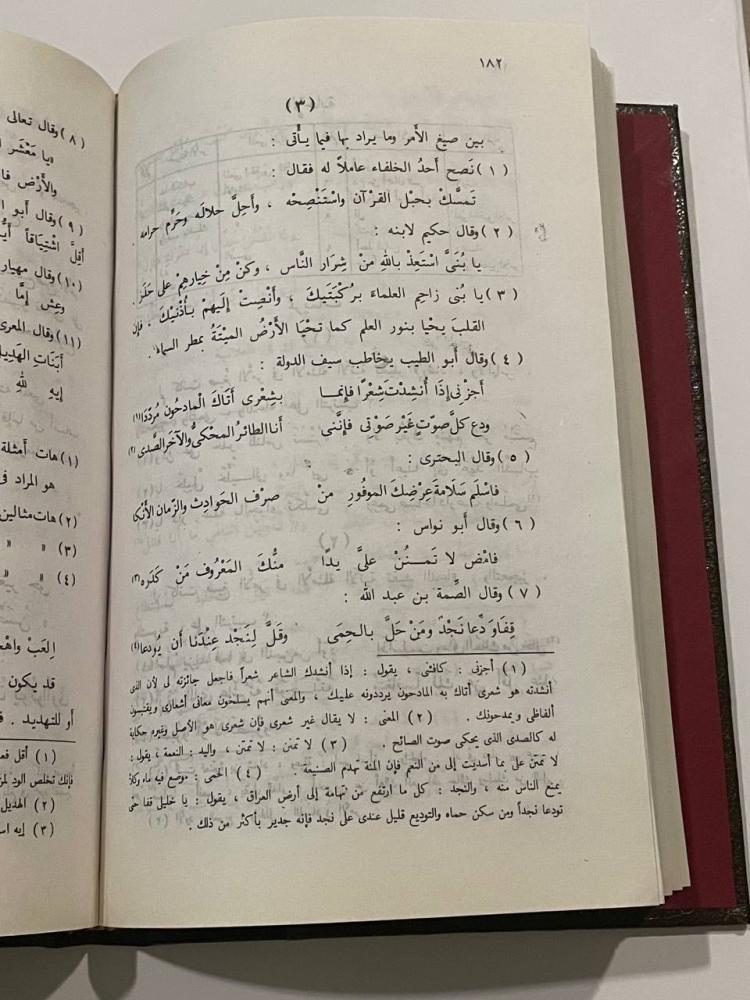 ١٨٢
(٣)
بين صيغ الأمر وما يراد بها فيما يأتى :
(١) نصح أحدُ الخلفاء عاملاً له فقال :
تَمسَّكْ بحبْل القرْآن واسْتَنْصِحْه ، وأحِلَّ حلالَه وحَرِّم حرامه .
(٢) وقال حكيم لابنه :
يا بُنَىَّ اسْتَعِذْ باللهِ منْ شِرَار النَّاس ، وكنْ مِنْ خِيارهِمْ على حَذَر .
(٣) يا بُنى زاحِم العلماءَ برُكْبَتَيكَ ، وأنْصِتْ إلَيهمْ بأذُنَيْكَ ، فإن
القلبَ يحْيا بنور العلم كما تحْيَا الأرْضُ الميْتَةُ بمطر السماء .
(٤) وقال أبو الطيب يخاطب سيف الدولة :
أجزْنى إذَا أنْشِدْتَ شِعْرًا فإنمَا بشِعْرِى أتَاكَ المادحُون مُردَّدَا(١)
ودع كلَّ صوْتٍ غَيْر صَوْتِى فإنَّنى أنا الطائرُ المحْكىُّ والآخَرُ الصَّدى(٢)
(٥) وقال البحترى :
فاسْلَم سَلَامةَ عِرْضكَ الموفُورِ مِنْ صرْف الحَوادِث والزَّمان الأنْكد
(٦) وقال أبو نواس :
فامْض لا تَمنُنْ علىَّ يدًا منُّكَ المَعْروفَ مَنْ كدَره(٣)
(٧) وقال الصِّمة بن عبد الله :
قِفَا ودِّعا نَجْدً ومَنْ حَلَّ بالحِمَى وقَلَّ لِنَجْدٍ عِنْدَنا أن يُودعا(٤)
(١) أجزنى : كافئنى ، يقول : إذا أنشدك الشاعر شعراً فاجعل جائزته لى لأن الذى
أنشدته هو شعرى أتاك به المادحون يرددونه عليك ، والمعنى أنهم يسلخون معانى أشعارى ويقتبسون
ألفاظى ويمدحونك . (٢) المعنى : لا يقال غير شعرى فإن شعرى هو الأصل وغيره حكاية
له كالصدى الذى يحكى صوت الصائح . (٣) لا تمنن : لا تمتن ، واليد : النعمة ، يقول :
لا تمتن على بما أسديت إلى من النعم فإن المنة تهدم الصنيعة . (٤) الحمى : موضع فيه ماء وكلأ
يمنع الناس منه ، والنجد : كل ما ارتفع من تهامة إلى أرض العراق ، يقول : يا خليلى قفا حتى
تودعا نجداً ومن سكن حماه والتوديع قليل عندى على نجد فإنه جدير بأكثر من ذلك .
(٨) وقال تعالى
«يا مَعْشَر ا
والأرْض فا
(٩) وقال أبو ا
أقِلَّ اشْتِيَاقاً أيُّ
(١٠) وقال مهيار
وعِش إمَّا
(١١) وقال المعرى
أبَنَاتِ الهَدِيل
إيه للهِ
(١) هات أمثلة
هو المراد فى
(٢) هات مثالين
(٣) « «
(٤) « «
العَبْ واهْج
قد يكون
أو للتهديد .
(١) أقل فعل
فإنك تخلص الود لمن
(٢) الهديل
(٣) إيه اس